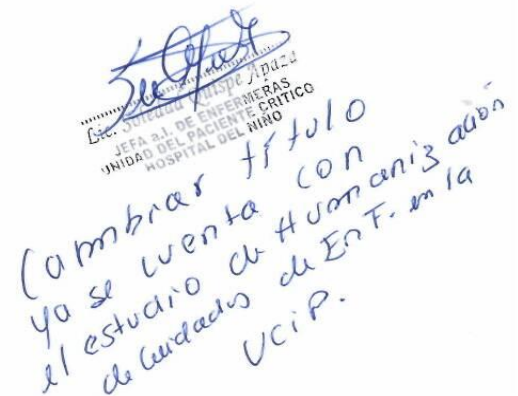 Lic. Soledad Quispe Apaza
JEFA a.i. DE ENFERMERAS
UNIDAD DEL PACIENTE CRITICO
HOSPITAL DEL NIÑO
Cambiar título
ya se cuenta con
el estudio de Humanización
de Cuidados de Enf. en la
UCIP.